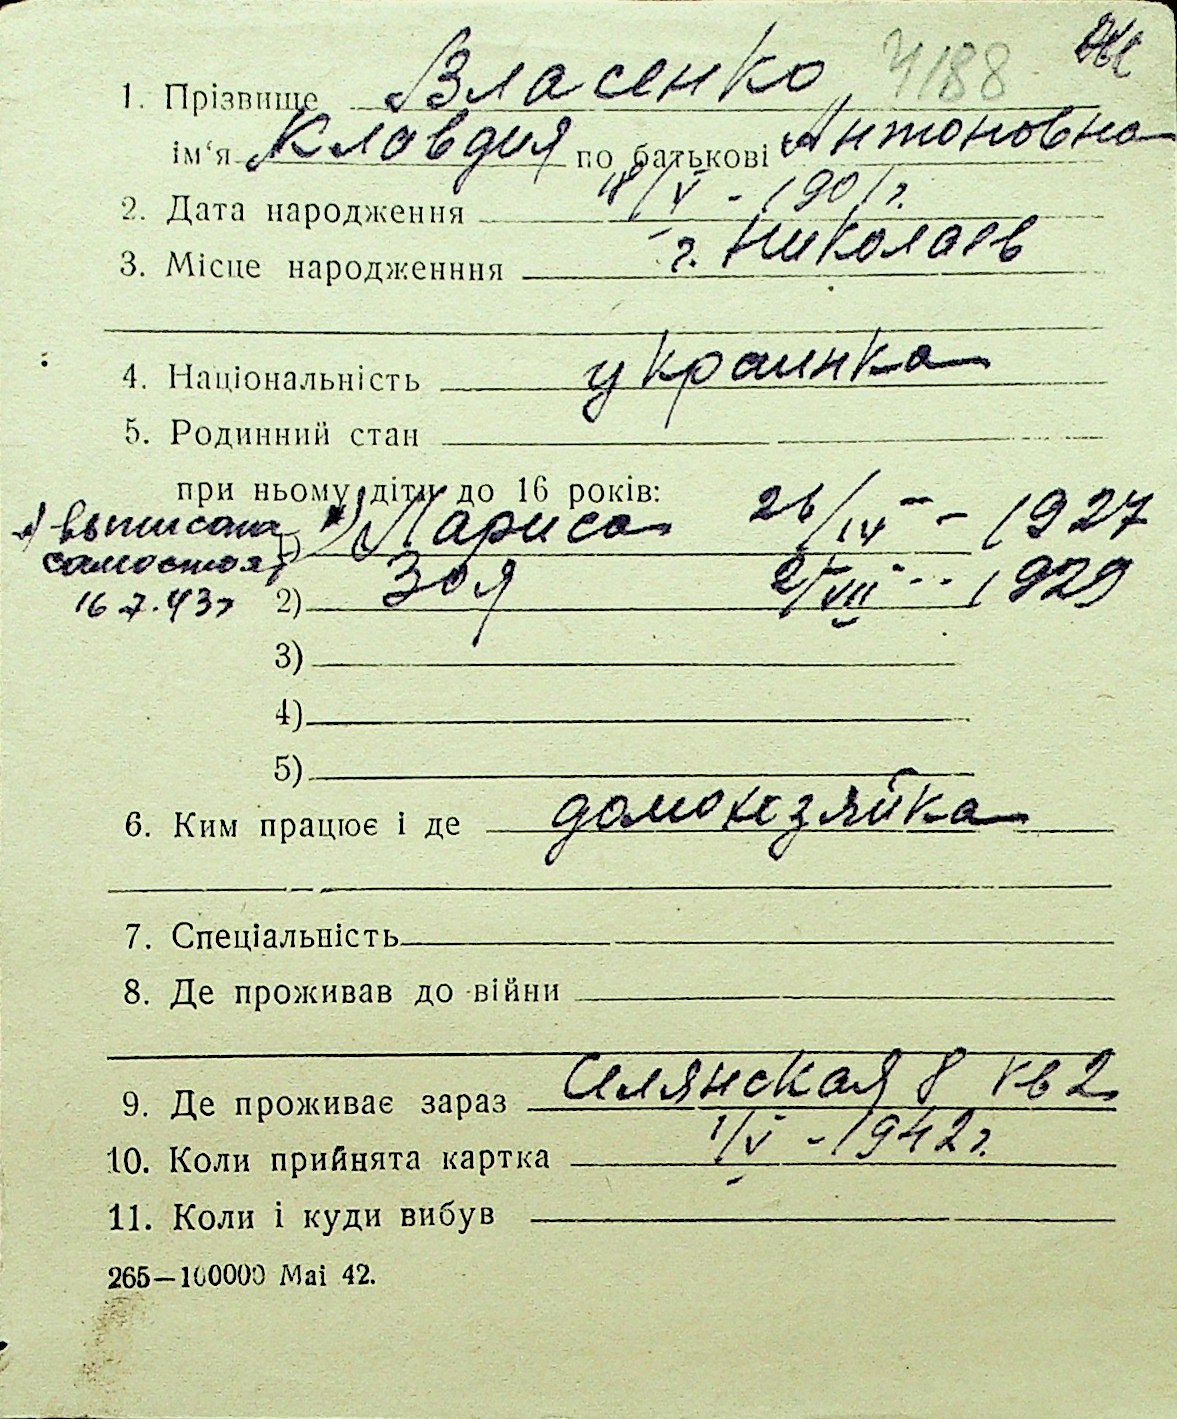 4188
1. Прізвище Власенко
ім‘я Клавдия по батькові Антоновна
2. Дата народження 18/V - 1901 г.
3. Місце народженння г. Николаев
4. Національність украинка
5. Родинний стан
при ньому діти до 16 років:
1) выписана самостоят. 16.7.43г
1) Лариса 26/IV - 1927
2) Зоя 2/VII - 1929
3)
4)
5)
6. Ким працює і де домохозяйка
7. Спеціальність
8. Де проживав до війни
9. Де проживає зараз Силянская 8 кв 2
10. Коли прийнята картка 1/V - 1942 г.
11. Коли і куди вибув
265—100000 Mai 42.